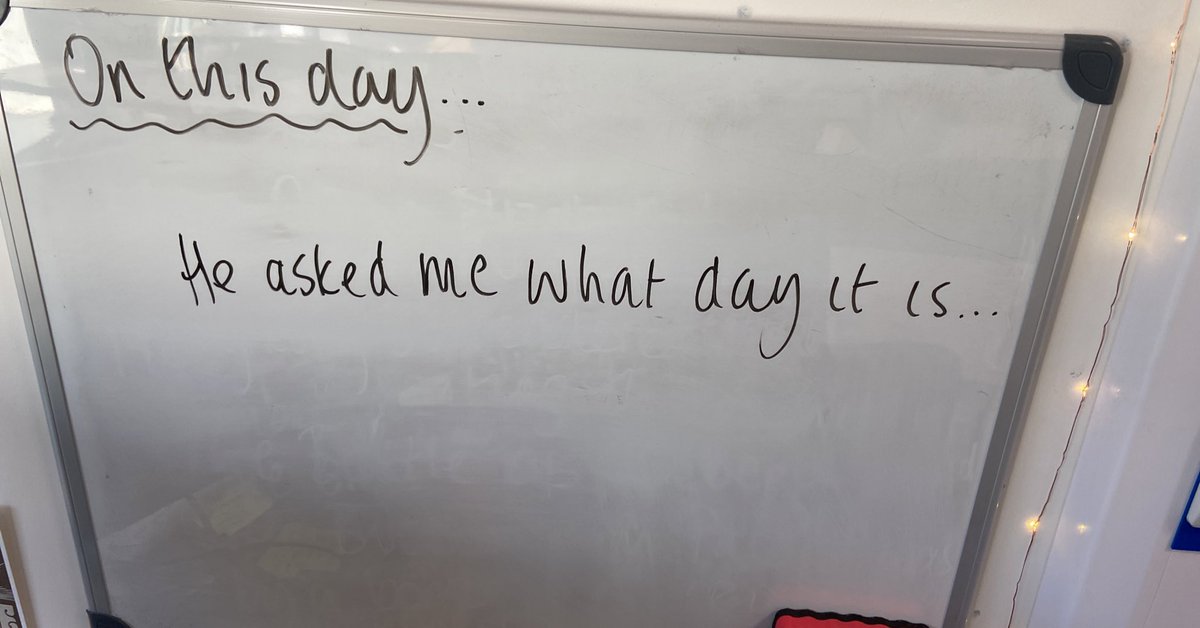 On this day...
He asked me what day it is...